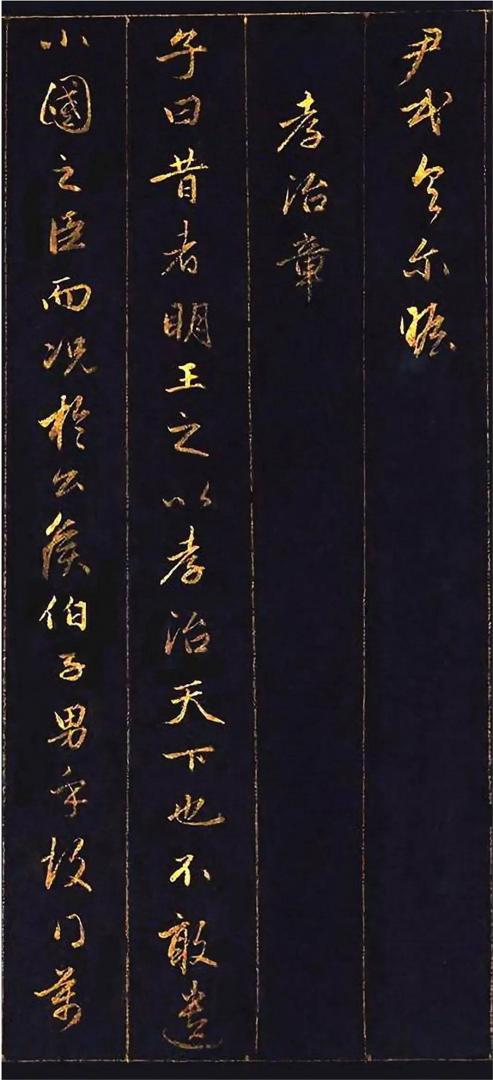 尹民具尔瞻
孝治章
子曰昔者明王之以孝治天下也不敢遺
小國之臣而况於公侯伯子男乎故得萬